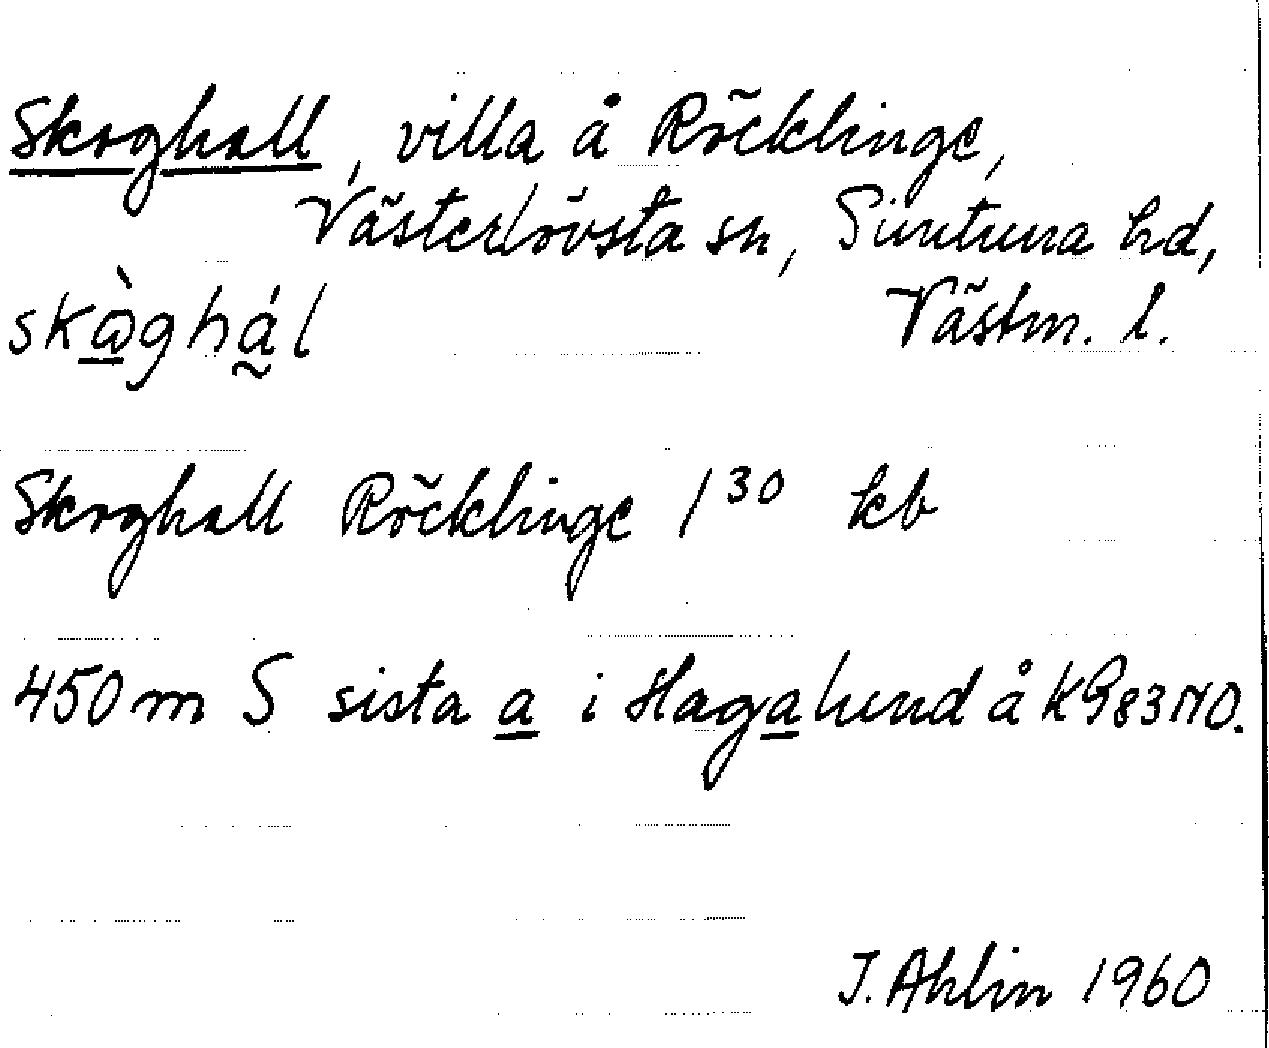 Skoghall, villa å Röcklinge,
Västerlövsta sn, Simtuna hd,
skòghál Västm. l.
Skoghall Röcklinge 1³⁰ kb
450 m S sista a i Hagalund å K983NO.
J. Ahlin 1960